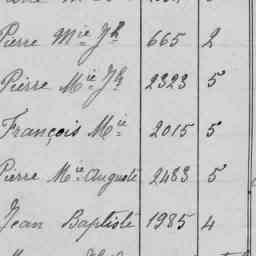 Pierre Mie Jh 665 2
Pierre Mie Jh 2323 5
François Mie 2015 5
Pierre Mie Auguste 2483 5
Jean Baptiste 1985 4